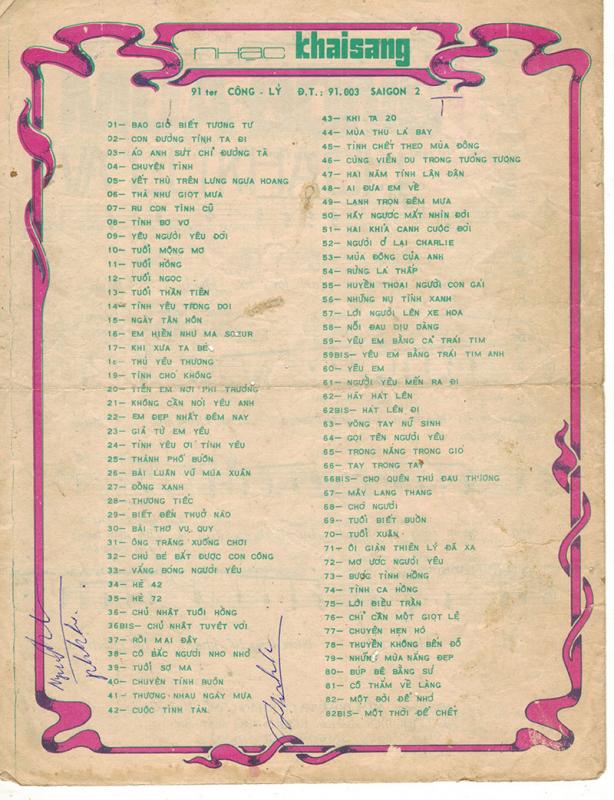 nhạc khaisang
91 ter CÔNG - LÝ Đ.T.: 91.003 SAIGON 2
01— BAO GIỜ BIẾT TƯƠNG TƯ
02— CON ĐƯỜNG TÌNH TA ĐI
03— ÁO ANH SỨT CHỈ ĐƯỜNG TÀ
04— CHUYỆN TÌNH
05— VẾT THÙ TRÊN LƯNG NGỰA HOANG
06— THÀ NHƯ GIỌT MƯA
07— RU CON TÌNH CŨ
08— TÌNH BƠ VƠ
09— YÊU NGƯỜI YÊU ĐỜI
10— TUỔI MỘNG MƠ
11— TUỔI HỒNG
12— TUỔI NGỌC
13— TUỔI THẦN TIÊN
14— TÌNH YÊU TRONG ĐỜI
15— NGÀY TÂN HÔN
16— EM HIỀN NHƯ MA SOEUR
17— KHI XƯA TA BÉ
18— THÚ YÊU THƯƠNG
19— TÌNH CHO KHÔNG
20— TIỄN EM NƠI PHI TRƯỜNG
21— KHÔNG CẦN NÓI YÊU ANH
22— EM ĐẸP NHẤT ĐÊM NAY
23— GIẢ TỪ EM YÊU
24— TÌNH YÊU ƠI TÌNH YÊU
25— THÀNH PHỐ BUỒN
26— BÀI LUÂN VŨ MÙA XUÂN
27— ĐỒNG XANH
28— THƯƠNG TIẾC
29— BIẾT ĐẾN THUỞ NÀO
30— BÀI THƠ VU QUY
31— ÔNG TRĂNG XUỐNG CHƠI
32— CHÚ BÉ BẮT ĐƯỢC CON CÔNG
33— VẮNG BÓNG NGƯỜI YÊU
34— HÈ 42
35— HÈ 72
36— CHỦ NHẬT TUỔI HỒNG
36BIS— CHỦ NHẬT TUYỆT VỜI
37— RỒI MAI ĐÂY
38— CÔ BẮC NGƯỜI NHO NHỎ
39— TUỔI SỢ MA
40— CHUYỆN TÌNH BUỒN
41— THƯƠNG NHAU NGÀY MƯA
42— CUỘC TÌNH TÀN
43— KHI TA 20
44— MÙA THU LÁ BAY
45— TÌNH CHẾT THEO MÙA ĐÔNG
46— CŨNG VIỄN DU TRONG TƯỞNG TƯỢNG
47— HAI NĂM TÌNH LẬN ĐẬN
48— AI ĐƯA EM VỀ
49— LẠNH TRỌN ĐÊM MƯA
50— HÃY NGƯỚC MẮT NHÌN ĐỜI
51— HAI KHÍA CẠNH CUỘC ĐỜI
52— NGƯỜI Ở LẠI CHARLIE
53— MÙA ĐÔNG CỦA ANH
54— RỪNG LÁ THẤP
55— HUYỀN THOẠI NGƯỜI CON GÁI
56— NHỮNG NỤ TÌNH XANH
57— LỜI NGƯỜI LÊN XE HOA
58— NỖI ĐAU DỊU DÀNG
59— YÊU EM BẰNG CẢ TRÁI TIM
59BIS— YÊU EM BẰNG TRÁI TIM ANH
60— YÊU EM
61— NGƯỜI YÊU MẾN RA ĐI
62— HÃY HÁT LÊN
62BIS— HÁT LÊN ĐI
63— VÒNG TAY NỮ SINH
64— GỌI TÊN NGƯỜI YÊU
65— TRONG NẮNG TRONG GIÓ
66— TAY TRONG TAY
66BIS— CHO QUÊN THÚ ĐAU THƯƠNG
67— MÂY LANG THANG
68— CHỜ NGƯỜI
69— TUỔI BIẾT BUỒN
70— TUỔI XUÂN
71— ÔI GIÀN THIÊN LÝ ĐÃ XA
72— MƠ ƯỚC NGƯỜI YÊU
73— BƯỚC TÌNH HỒNG
74— TÌNH CA HỒNG
75— LỜI ĐIÊU TRẦN
76— CHỈ CẦN MỘT GIỌT LỆ
77— CHUYỆN HẸN HÒ
78— THUYỀN KHÔNG BẾN ĐỖ
79— NHỮNG MÙA NẮNG ĐẸP
80— BÚP BÊ BẰNG SỨ
81— CÔ THẮM VỀ LÀNG
82— MỘT ĐỜI ĐỂ NHỚ
82BIS— MỘT THỜI ĐỂ CHẾT